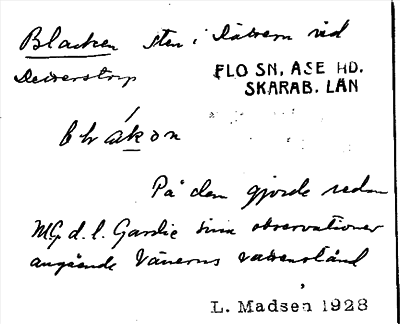 Blacken sten i Dättern vid
FLO SN, ASE HD.
SKARAB. LÄN
blåkon
På den gjorde redan
M.G. d. l. Gardie sina observationer
angående Vänerns vattenstånd
L. Madsen 1928